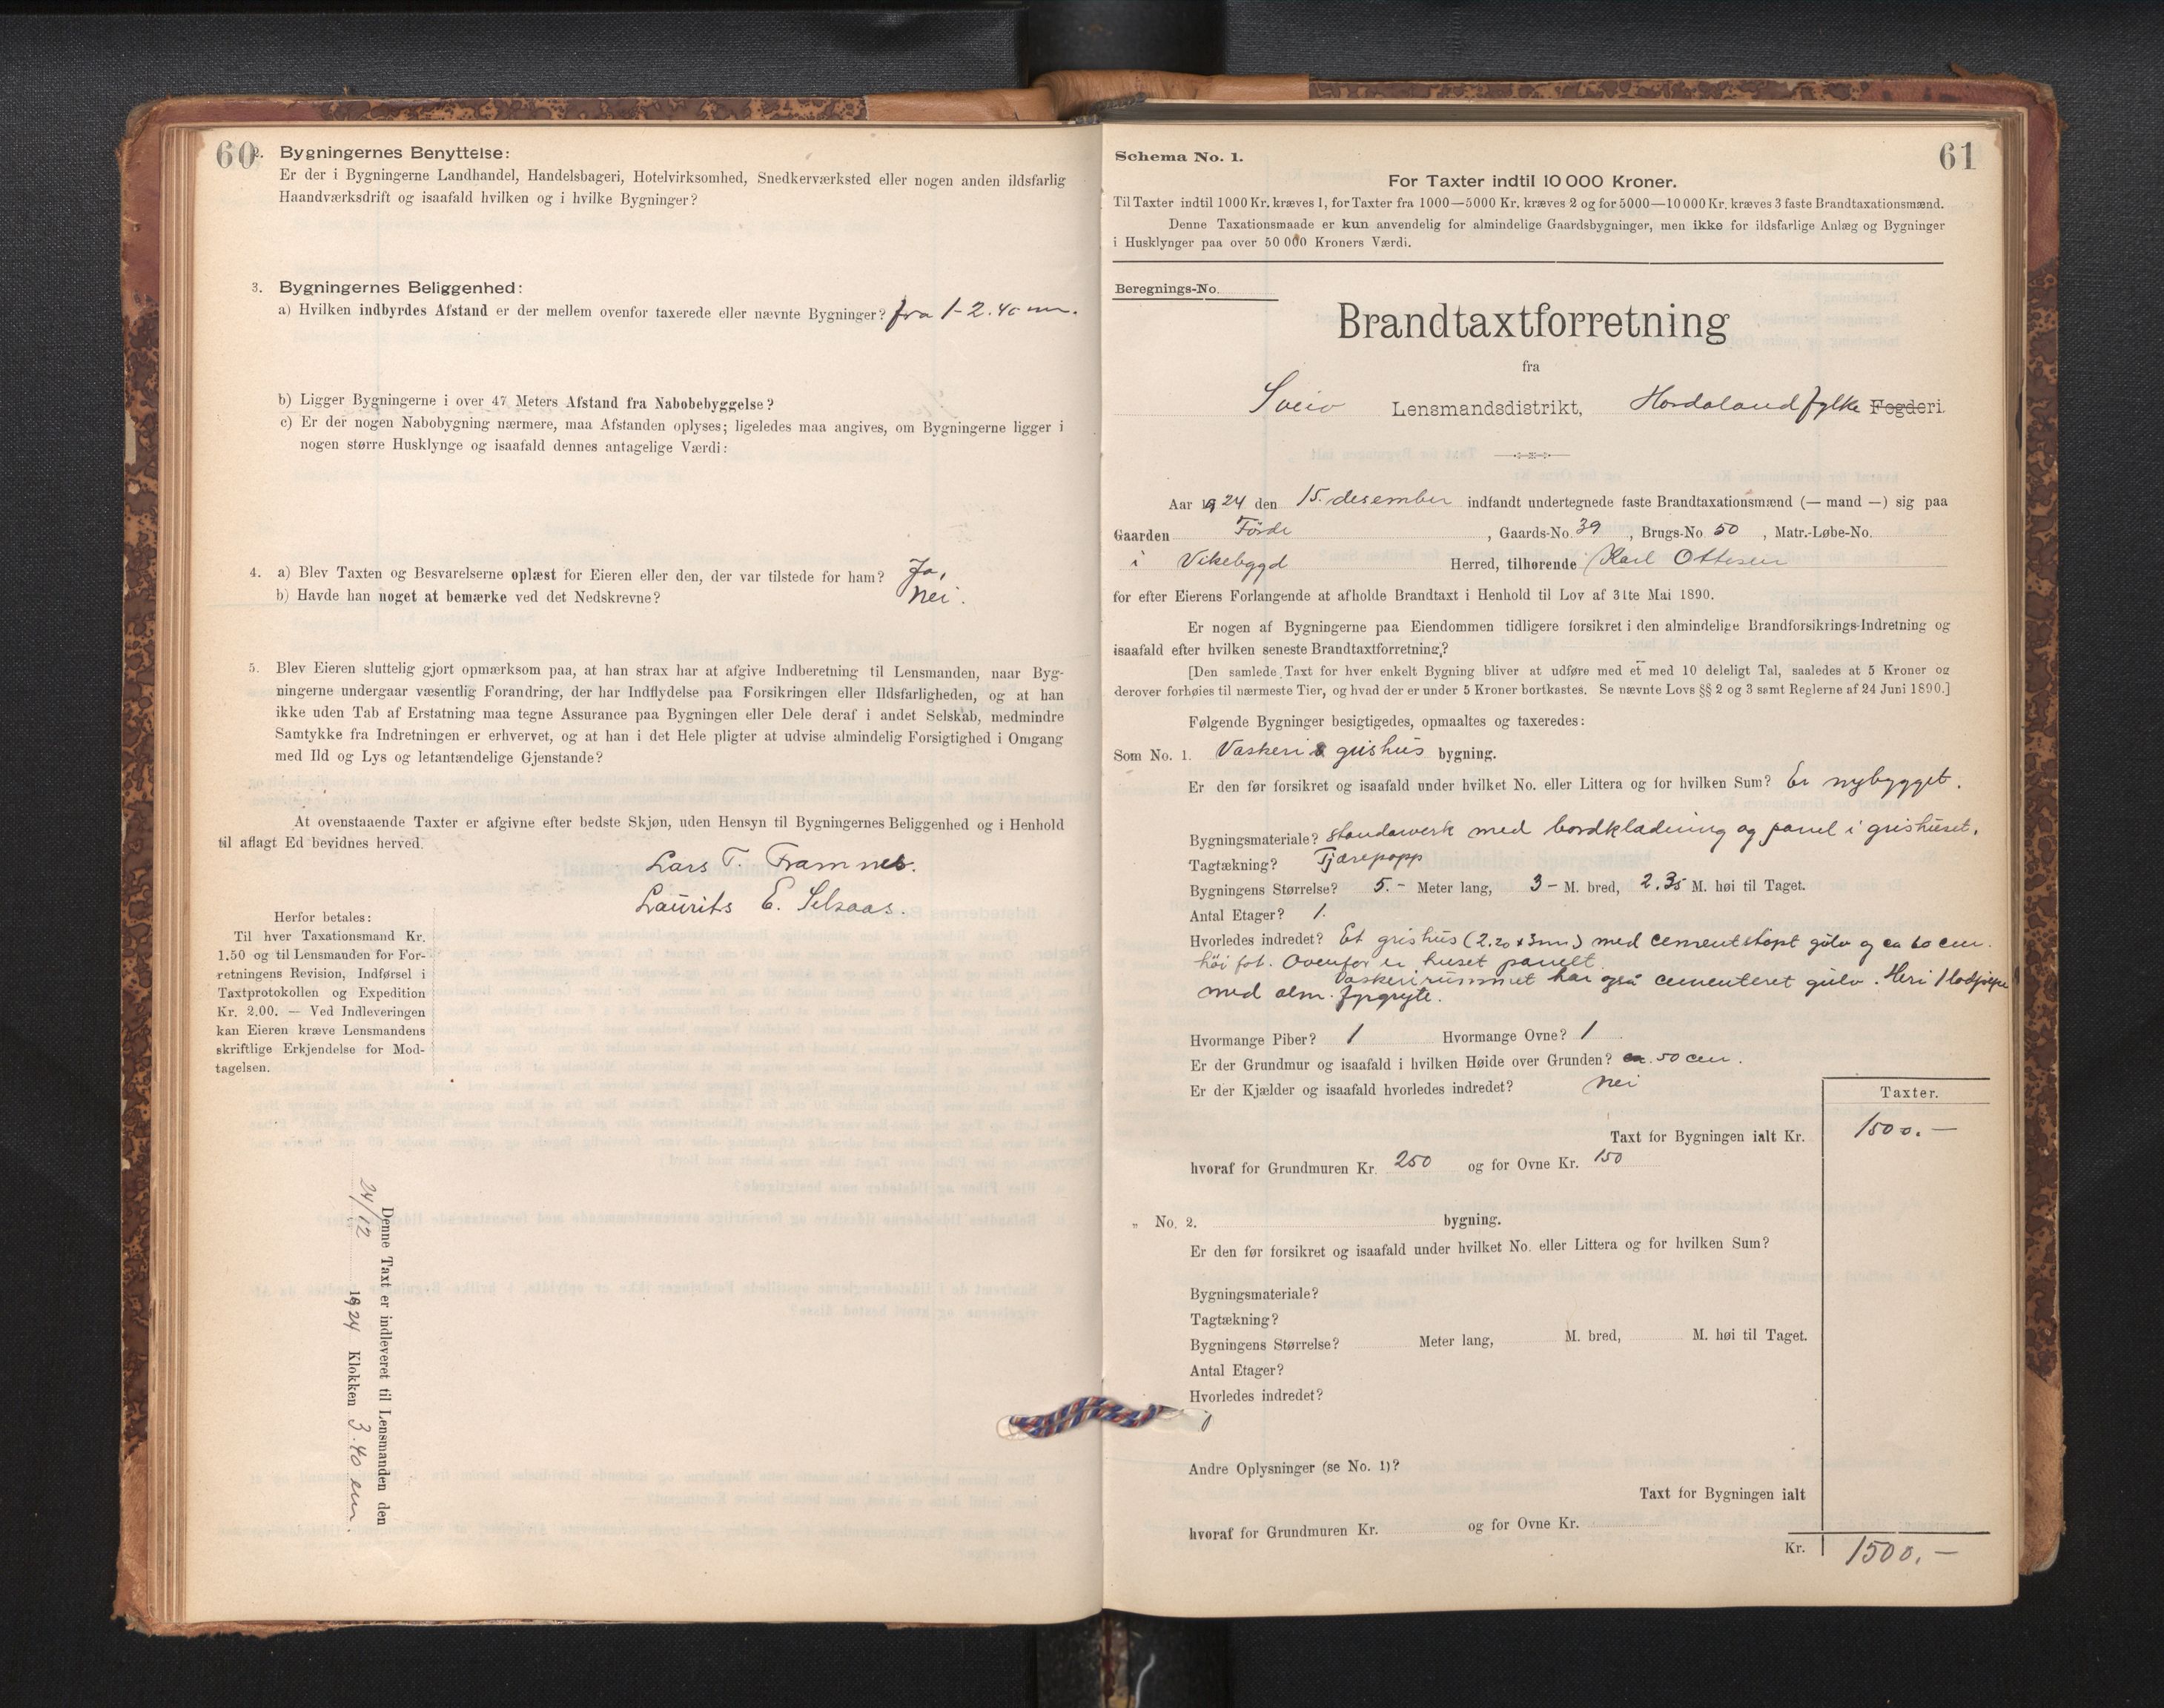 60
2. Bygningernes Benyttelse:
Er der i Bygningerne Landhandel, Handelsbageri, Hotelvirksomhed, Snedkerværksted eller nogen anden ildsfarlig
Haandværksdrift og isaafald hvilken og i hvilke Bygninger?
3. Bygningernes Beliggenhed:
a) Hvilken indbyrdes Afstand er der mellem ovenfor taxerede eller nævnte Bygninger? fra 1-2. 40 m.
b) Ligger Bygningerne i over 47 Meters Afstand fra Nabobebyggelse?
c) Er der nogen Nabobygning nærmere, maa Afstanden oplyses; ligeledes maa angives, om Bygningerne ligger i
nogen større Husklynge og isaafald dennes antagelige Værdi:
4. a) Blev Taxten og Besvarelserne oplæst for Eieren eller den, der var tilstede for ham? Ja,
b) Havde han noget at bemærke ved det Nedskrevne? Nei.
5. Blev Eieren sluttelig gjort opmærksom paa, at han strax har at afgive Indberetning til Lensmanden, naar Byg-
ningerne undergaar væsentlig Forandring, der har Indflydelse paa Forsikringen eller Ildsfarligheden, og at han
ikke uden Tab af Erstatning maa tegne Assurance paa Bygningen eller Dele deraf i andet Selskab, medmindre
Samtykke fra Indretningen er erhvervet, og at han i det Hele pligter at udvise almindelig Forsigtighed i Omgang
med Ild og Lys og letantændelige Gjenstande?
At ovenstaaende Taxter er afgivne efter bedste Skjøn, uden Hensyn til Bygningernes Beliggenhed og i Henhold
til aflagt Ed bevidnes herved.
Lars T. Framnes.
Laurits E. Selsaas.
Herfor betales:
Til hver Taxationsmand Kr.
1.50 og til Lensmanden for For-
retningens Revision, Indførsel i
Taxtprotokollen og Expedition
Kr. 2,00. — Ved Indleveringen
kan Eieren kræve Lensmandens
skriftlige Erkjendelse for Mod-
tagelsen.
Denne Taxt er indleveret til Lensmanden den
24/12 1924 Klokken 3.40 em.
61
Schema No. 1.
For Taxter indtil 10 000 Kroner.
Til Taxter indtil 1000 Kr. kræves 1, for Taxter fra 1000—5000 Kr. kræves 2 og for 5000—10 000 Kr. kræves 3 faste Brandtaxationsmænd.
Denne Taxationsmaade er kun anvendelig for almindelige Gaardsbygninger, men ikke for ildsfarlige Anlæg og Bygninger
i Husklynger paa over 50 000 Kroners Værdi.
Beregnings-No.
Brandtaxtforretning
fra
Sveio Lensmandsdistrikt, Hordaland fylke Fogderi
Aar 1924 den 15. desember indfandt undertegnede faste Brandtaxationsmænd (— mand —) sig paa
Gaarden Förde, Gaards-No. 39, Brugs-No. 50, Matr.-Løbe-No.
i Vikebygd Herred, tilhørende Karl Ottesen
for efter Eierens Forlangende at afholde Brandtaxt i Henhold til Lov af 31te Mai 1890.
Er nogen af Bygningerne paa Eiendommen tidligere forsikret i den almindelige Brandforsikrings-Indretning og
isaafald efter hvilken seneste Brandtaxtforretning?
[Den samlede Taxt for hver enkelt Bygning bliver at udføre med et med 10 deleligt Tal, saaledes at 5 Kroner og
derover forhøies til nærmeste Tier, og hvad der er under 5 Kroner bortkastes. Se nævnte Lovs §§ 2 og 3 samt Reglerne af 24 Juni 1890.]
Følgende Bygninger besigtigedes, opmaaltes og taxeredes:
Som No. 1. Vaskeri & grishus bygning.
Er den før forsikret og isaafald under hvilket No. eller Littera og for hvilken Sum? Er nybygget.
Bygningsmateriale? standarverk med bordkladning og panel i grishuset.
Tagtækning? Tjærepapp
Bygningens Størrelse? 5.- Meter lang, 3- M. bred, 2.35 M. høi til Taget.
Antal Etager? 1.
Hvorledes indredet? Et grishus (2.20 x 3 m) med cementstøpt gulv og ca 60 cm.
høi fot. Ovenfor er huset panelt.
Vaskerirummet har også cementeret gulv. Heri 1
med alm. fyrgryte.
Hvormange Piber? 1 Hvormange Ovne? 1
Er der Grundmur og isaafald i hvilken Høide over Grunden? ca. 50 cm.
Er der Kjælder og isaafald hvorledes indredet? Nei
Taxter.
Taxt for Bygningen ialt Kr. 1500.—
hvoraf for Grundmuren Kr. 250 og for Ovne Kr. 150
„ No. 2. bygning.
Er den før forsikret og isaafald under hvilket No. eller Littera og for hvilken Sum?
Bygningsmateriale?
Tagtækning?
Bygningens Størrelse? Meter lang, M. bred, M. høi til Taget.
Antal Etager?
Hvorledes indredet?
Andre Oplysninger (se No. 1)?
Taxt for Bygningen ialt
hvoraf for Grundmuren Kr. og for Ovne Kr.
Kr. 1500.—